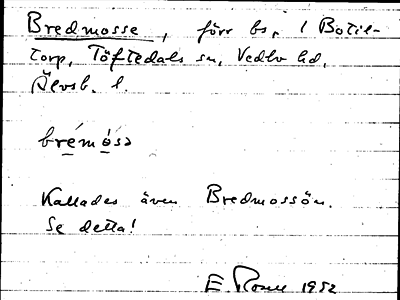 Bredmosse, förr bs, i Botil-
torp, Töftedals sn, Vedbo hd,
Älvsb. l.
brémòsa
Kallades även Bredmossön.
Se detta!
E. 1952